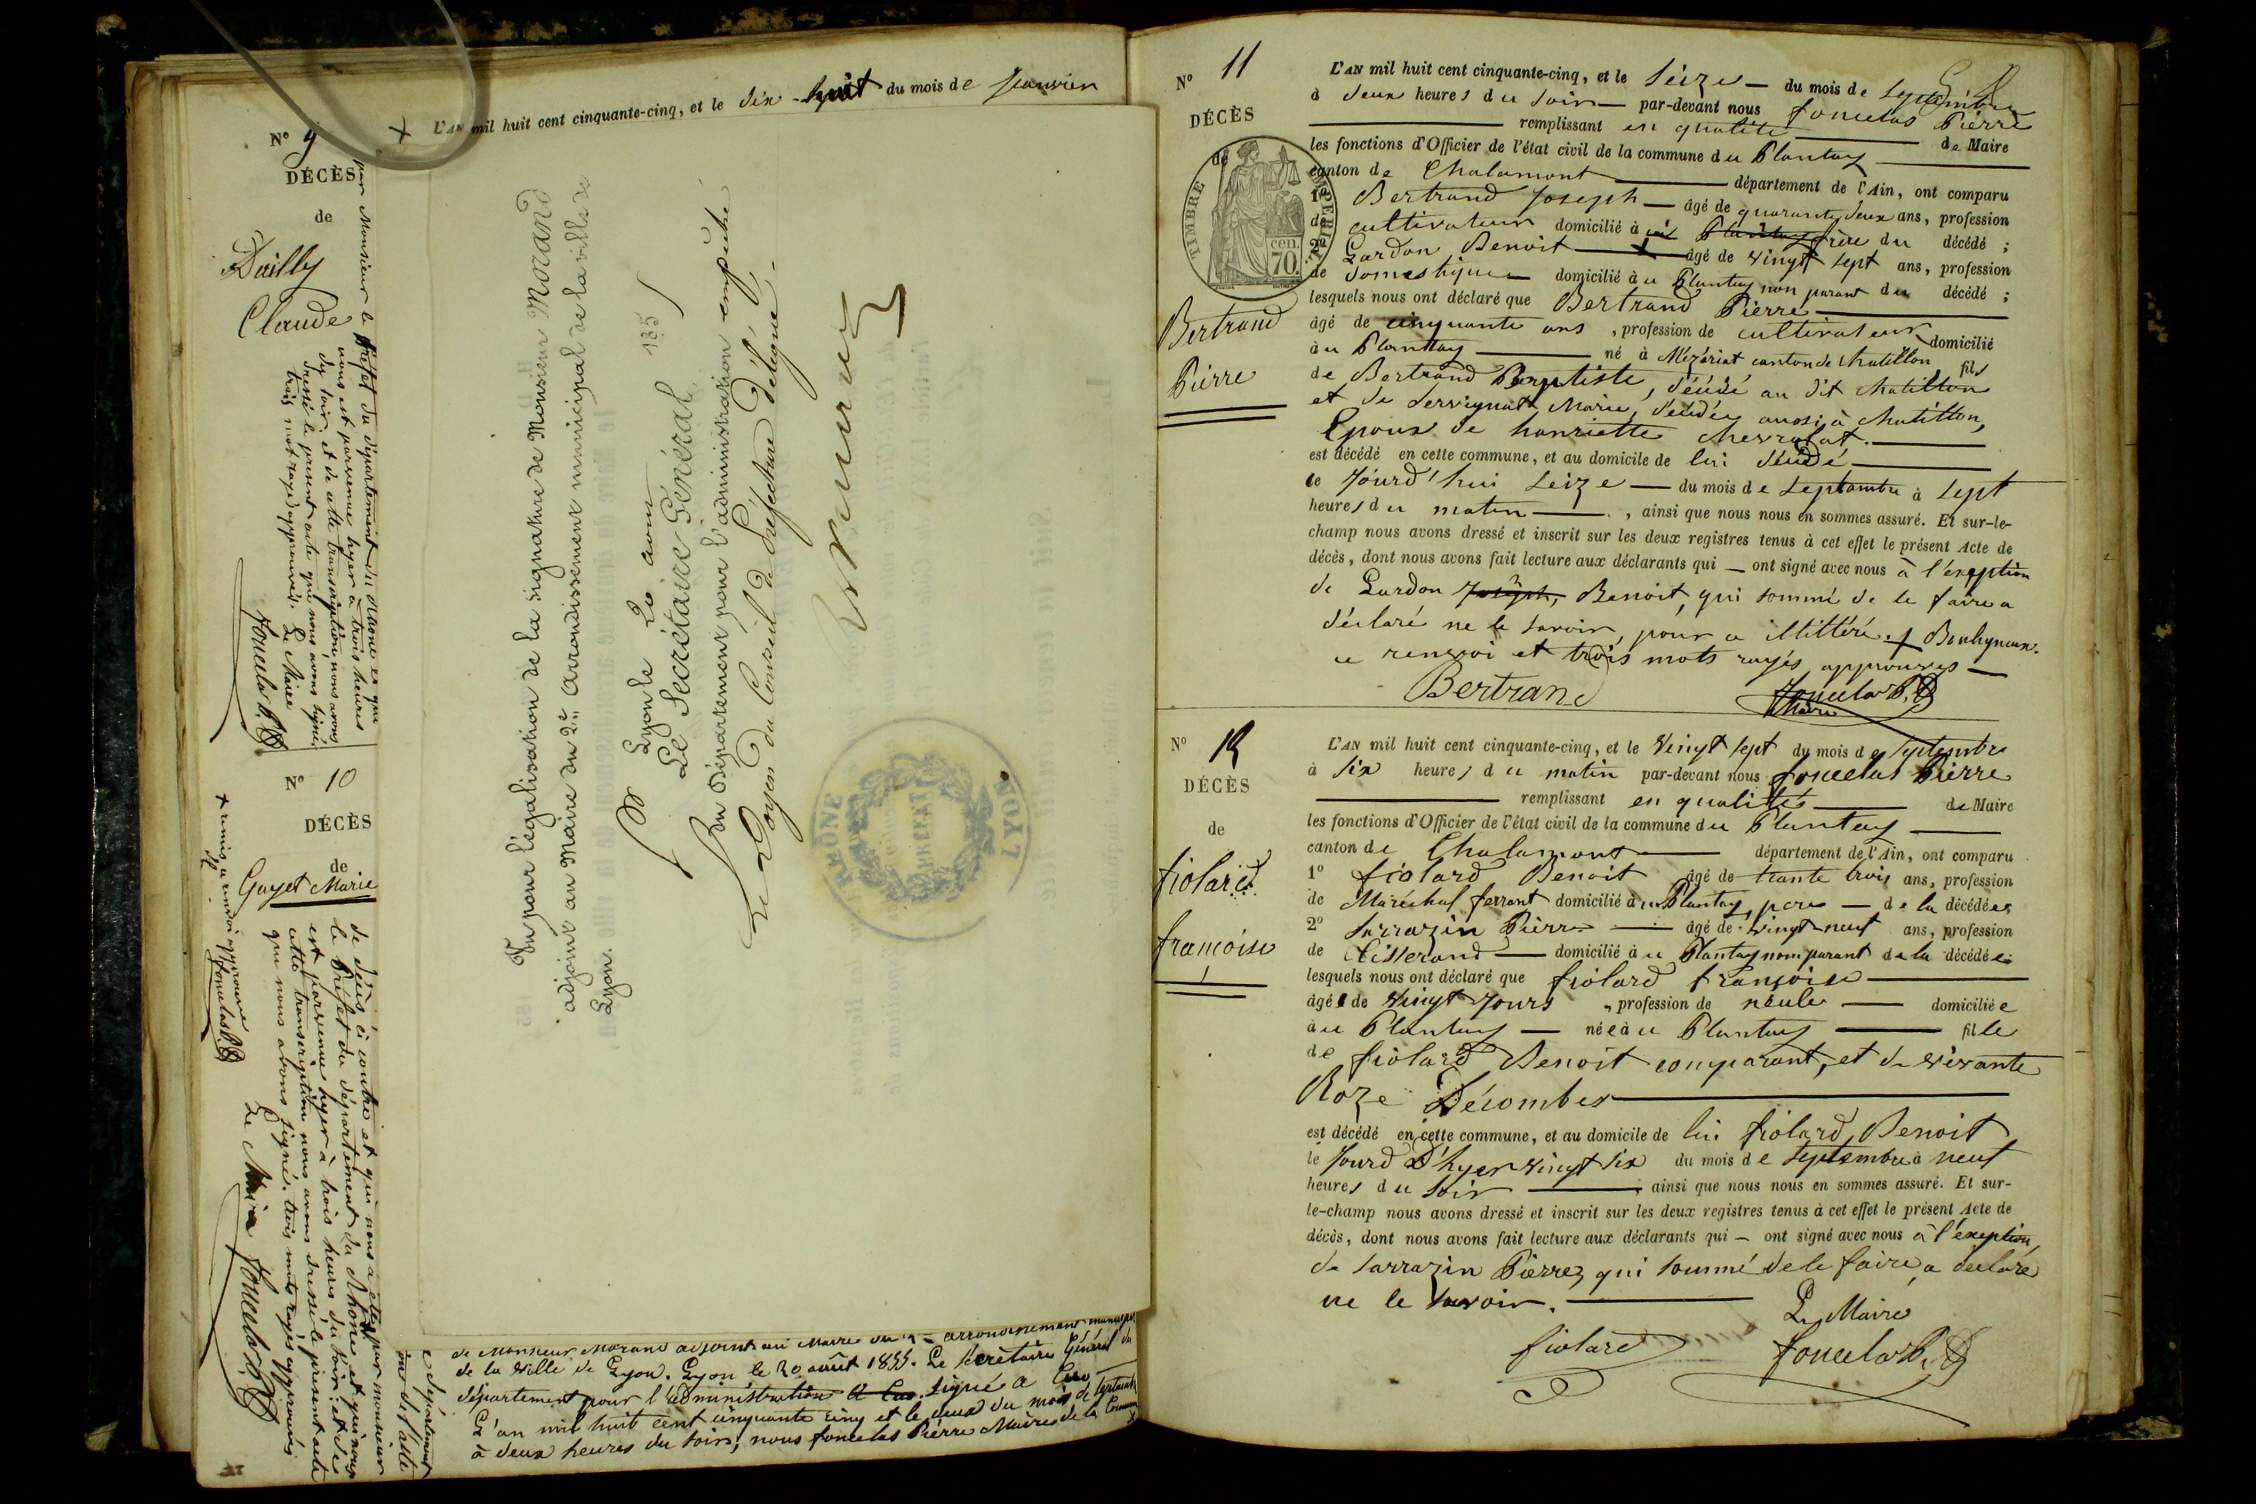 L'AN mil huit cent cinquante-cinq, et le dix-huit du mois de Janvier
N° 9
DÉCÈS
de
Dailly
Claude
par Monsieur le Préfet du département du Rhône et qui
nous est parvenue hyer à trois heures
du soir, et de cette transcription, nous avons
dressé le present acte que nous avons signé,
trois mots rayés approuvés. Le Maire
Foncelas P.
N° 10
DÉCÈS
de
Guyet Marie
+ remis renvoi approuvé
Foncelas P.
de décès ci contre et qui nous a été par monsieur
le Préfet du département du Rhône et qui nous
est parvenue hyer à trois heures du soir, et de
cette transcription nous avons dressé le present acte
que nous avons signé. trois mots rayés approuvés
Le Maire Foncelas P.
Vu pour légalisation de la signature de Monsieur Morand
adjoint au Maire du 2e arrondissement municipal de la ville de
Lyon.
Lyon le 20 aout 185
Le Secrétaire Général
du Département pour l'administration empêché
Le Doyen du Conseil de Préfecture délégué.
RHONE
LYON
de Monsieur Morand adjoint au Maire du 2e arrondissement municipal
de la ville de Lyon. Lyon le 20 août 1855. Le Secrétaire Général du
département pour l'administration signé a
L'an mil huit cent cinquante cinq et le deux du mois de septembre
à deux heures du soir, nous foncelas Pierre Maire de la Commune
N° 11
DÉCÈS
de
TIMBRE IMPERIAL
70 cen.
Bertrand
Pierre
L'AN mil huit cent cinquante-cinq, et le seize — du mois de septembre
à deux heures du soir — par-devant nous foncelas Pierre
remplissant en qualité de Maire
les fonctions d'Officier de l'état civil de la commune du Plantay
canton de Chalamont département de l'Ain, ont comparu
1° Bertrand Joseph — âgé de quarante deux ans, profession
de cultivateur domicilié à Plantay frère du décédé ;
2° Gardon Benoit + âgé de vingt sept ans, profession
de domestique domicilié au Plantay non parant du décédé ;
lesquels nous ont déclaré que Bertrand Pierre
âgé de cinquante ans, profession de cultivateur domicilié
au Plantay né à Mézériat canton de Chatillon fils
de Bertrand Baptiste, décédé au dit Chatillon
et de Servignat Marie, décédée aussi à Chatillon,
Epoux de hanriette chevrolat.
est décédé en cette commune, et au domicile de lui décédé
le Jourd'hui seize — du mois de septembre à sept
heures du matin, ainsi que nous nous en sommes assuré. Et sur-le-
champ nous avons dressé et inscrit sur les deux registres tenus à cet effet le présent Acte de
décès, dont nous avons fait lecture aux déclarants qui — ont signé avec nous à l'exeption
de Gardon Joseph, Benoit, qui sommé de le faire a
déclaré ne le savoir, pour ce illittéré. + Bouligneux.
ce renvoi et trois mots rayés approuvés —
Bertrand Foncelas P.
Maire
N° 12
DÉCÈS
de
fiolard
francoise
L'AN mil huit cent cinquante-cinq, et le vingt sept du mois de septembre
à six heures du matin par-devant nous foncelas Pierre
remplissant en qualités de Maire
les fonctions d'Officier de l'état civil de la commune du Plantay
canton de Chalamont département de l'Ain, ont comparu
1° fiolard Benoit âgé de trante trois ans, profession
de Maréchal ferrant domicilié au Plantay, pere — de la décédée
2° Sarrazin Pierre — âgé de vingt-neuf ans, profession
de Tisserand — domicilié au Plantay non parant de la décédée
lesquels nous ont déclaré que fiolard françoise
âgé de vingt Jours, profession de neule — domiciliée
au Plantay — née au Plantay fille
de fiolard Benoit comparant, et de vivante
Roze Décombes
est décédé en cette commune, et au domicile de lui fiolard, Benoit
le Jourd D'hyer vingt six du mois de septembre à neuf
heures du soir ainsi que nous nous en sommes assuré. Et sur-
le-champ nous avons dressé et inscrit sur les deux registres tenus à cet effet le présent Acte de
décès, dont nous avons fait lecture aux déclarants qui — ont signé avec nous à l'exeption
de Sarrazin Pierre, qui sommé de le faire, a declaré
ne le savoir.
Le Maire
fiolard foncelas P.